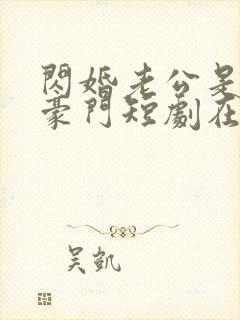 閃婚老公是
豪門短劇在
吴凱